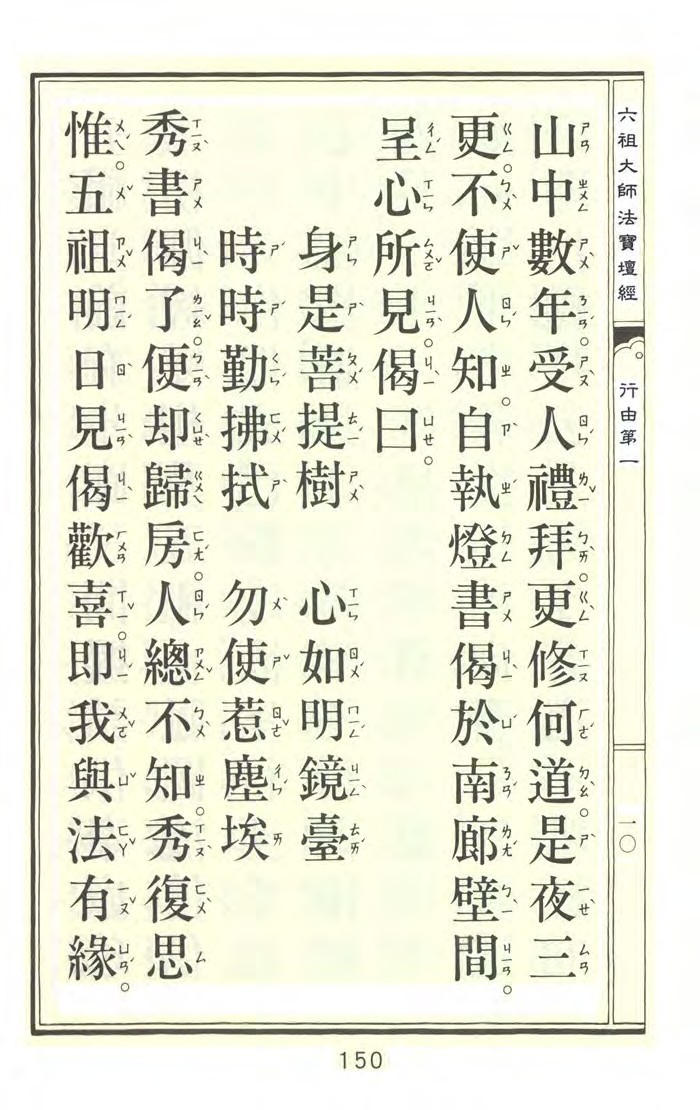 六祖大師法寶壇經 行由第一 一〇
山中數年。受人禮拜。更修何道。是夜三
更。不使人知。自執燈。書偈於南廊壁間。
呈心所見。偈曰。
身是菩提樹 心如明鏡臺
時時勤拂拭 勿使惹塵埃
秀書偈了。便却歸房。人總不知。秀復思
惟。五祖明日見偈歡喜。即我與法有緣。
150